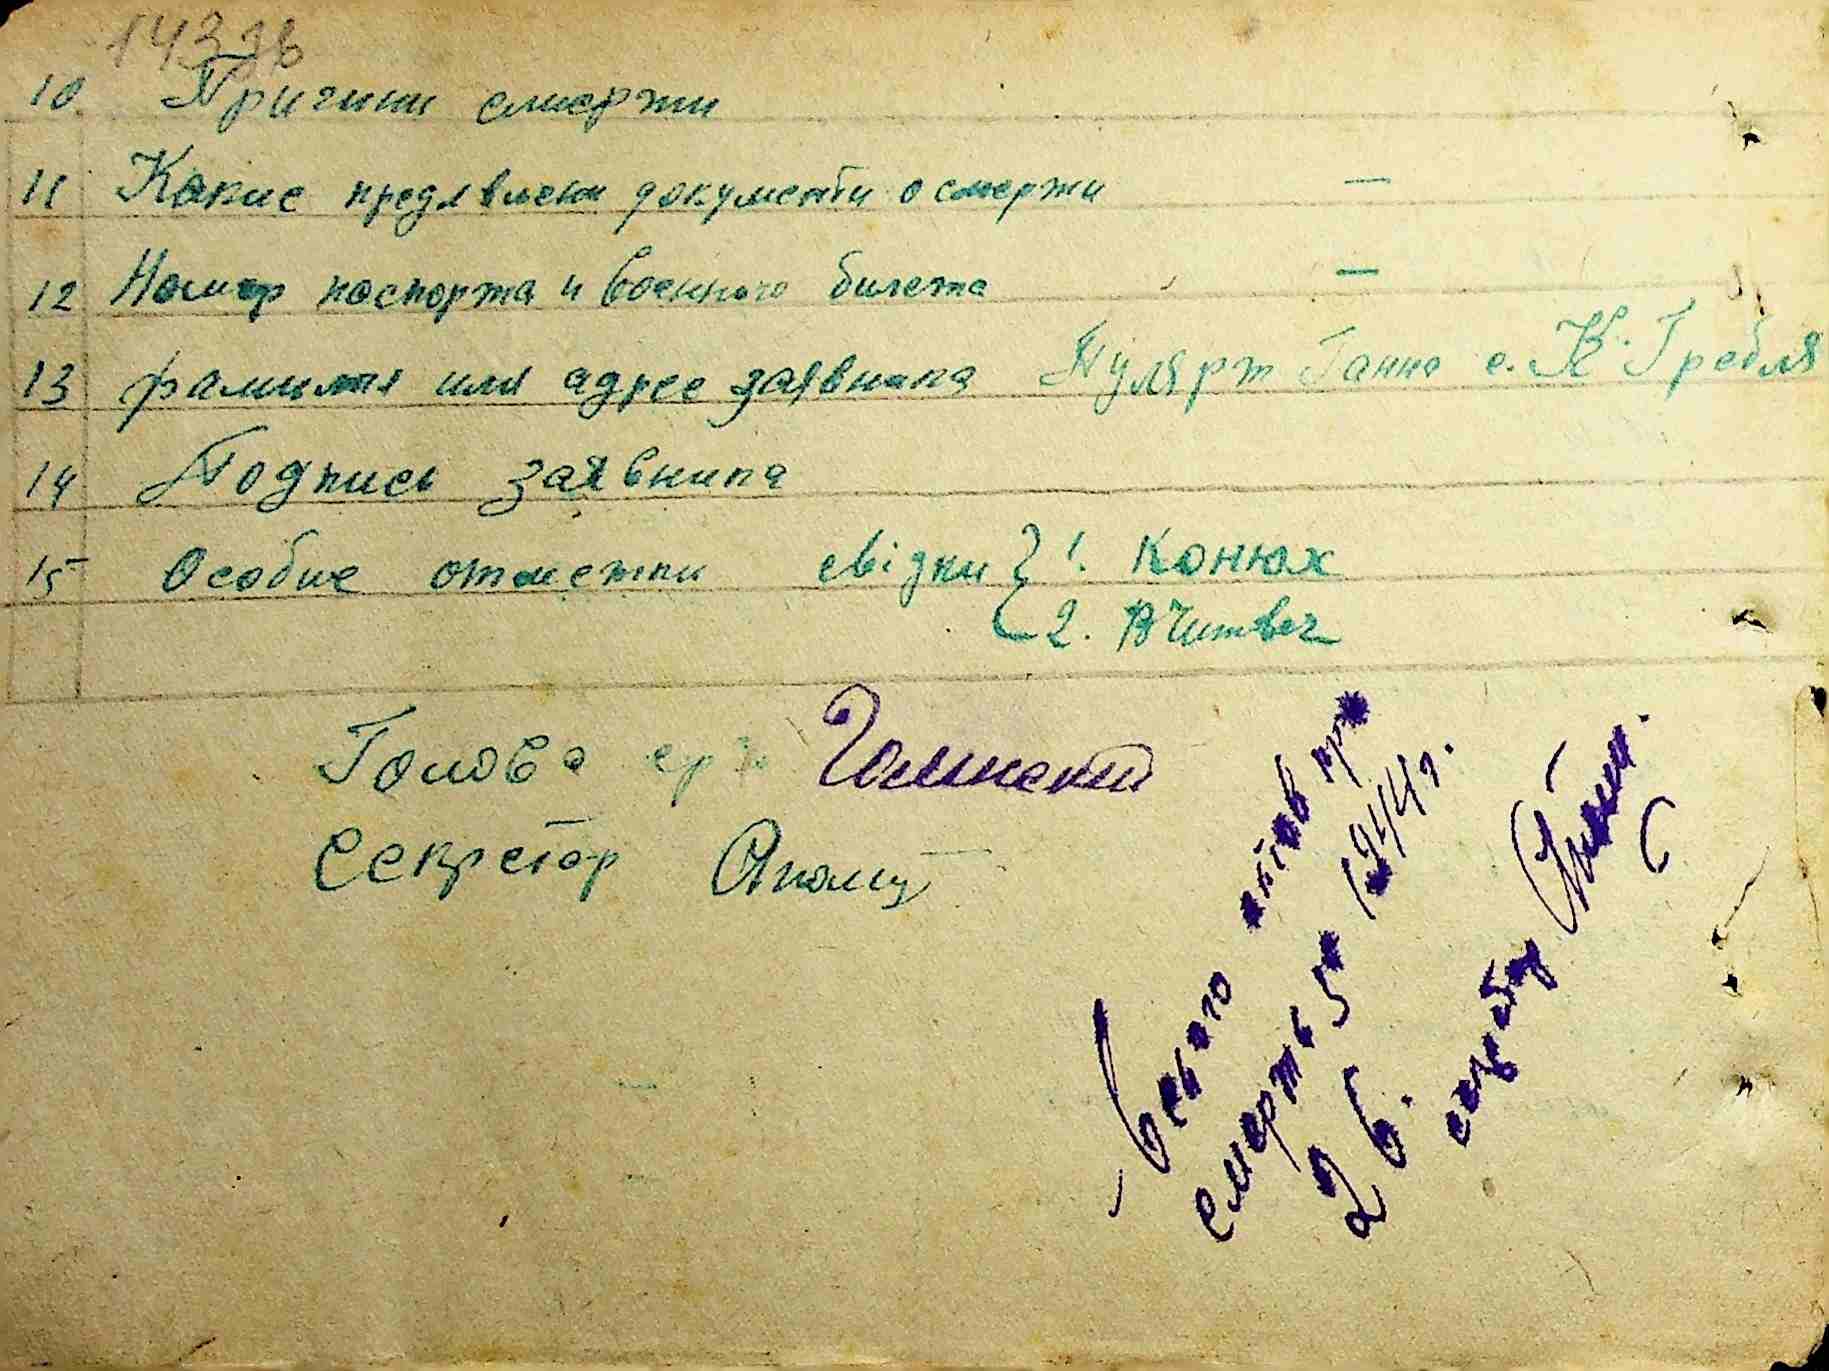 143зв
10 Причини смерти
11 Какие предлвлени документи о смерти —
12 Номер паспорта и военного билета —
13 фамилия или адрес заявника Мулярт Ганна с. К. Гребля
14 Подпись заявника
15 Особие отметки свідки } 1. Конюх
2.
Голова
Секретар
Всього актов про
смерть 5 1944г.
2 б.